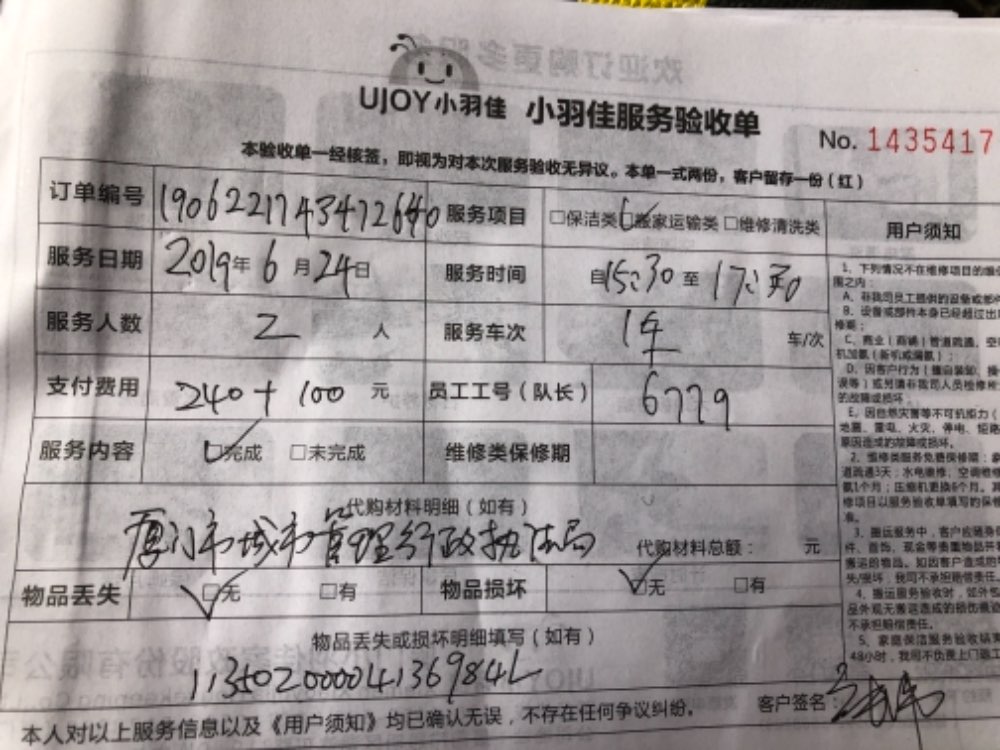 UJOY小羽佳 小羽佳服务验收单
No. 1435417
本验收单一经核签，即视为对本次服务验收无异议。本单一式两份，客户留存一份（红）
订单编号 1906221743472640 服务项目 □保洁类 □搬家运输类 □维修清洗类 用户须知
服务日期 2019年6月24日 服务时间 自15:30至17:30
服务人数 2 人 服务车次 1车 车/次
支付费用 240+100 元 员工工号（队长） 6779
服务内容 □完成 □未完成 维修类保修期
代购材料明细（如有）
厦门市城市管理行政执法局 代购材料总额： 元
物品丢失 □无 □有 物品损坏 □无 □有
物品丢失或损坏明细填写（如有）
11350200004136984L
本人对以上服务信息以及《用户须知》均已确认无误，不存在任何争议纠纷。 客户签名：
1、下列情况不在维修项目的
围之内：
A、非我司员工提供的设备或部件
B、设备或部件本身已经超过出
修期；
C、商业（商铺）管道疏通、空
机加氟（新机或漏氟）；
D、因客户行为（擅自装卸、
误等）或另请非我司人员检修所
的故障或损坏。
E、因自然灾害等不可抗拒力（
地震、雷电、火灾、停电、
原因造成的故障或损坏。
2、维修类服务免费保修期：
道疏通3天；水电维修、空调维修
氟1个月；压缩机更换6个月。其
修项目以服务验收单填写的保修
准。
3、搬运服务中，客户应随身
件、首饰、现金等贵重物品并
搬运的物品。如因客户造成的
失/损坏，我司不承担赔偿责任。
4、搬运服务验收时，如外包
品外观无搬运造成的损伤
不承担赔偿责任。
5、家庭保洁服务验收结束
48小时，我司不负责上门返工